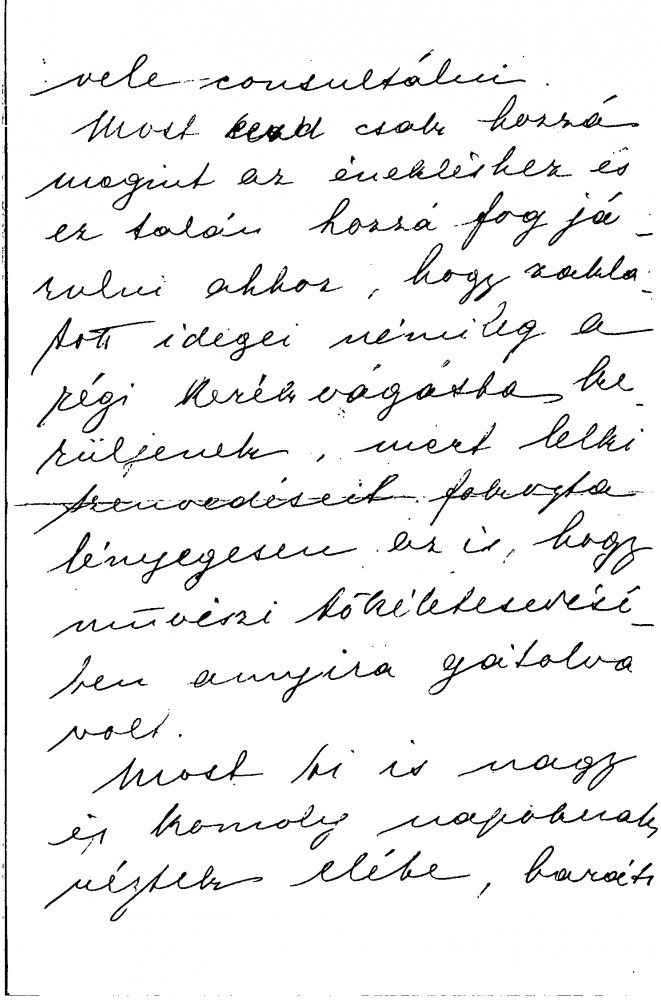 vele consultálni.
Most kezd csak hozzá
megint az énekléshez és
ez talán hozzá fog já-
rulni ahhoz, hogy zakla-
tott idegei némileg a
régi kerékvágásba ke-
rüljenek, mert lelki
szenvedéseit fokozta
lényegesen az is, hogy
művészi tökéletesedésé-
ben annyira gátolva
volt.
Most ti is nagy
és komoly napoknak
néztek elébe, baráti